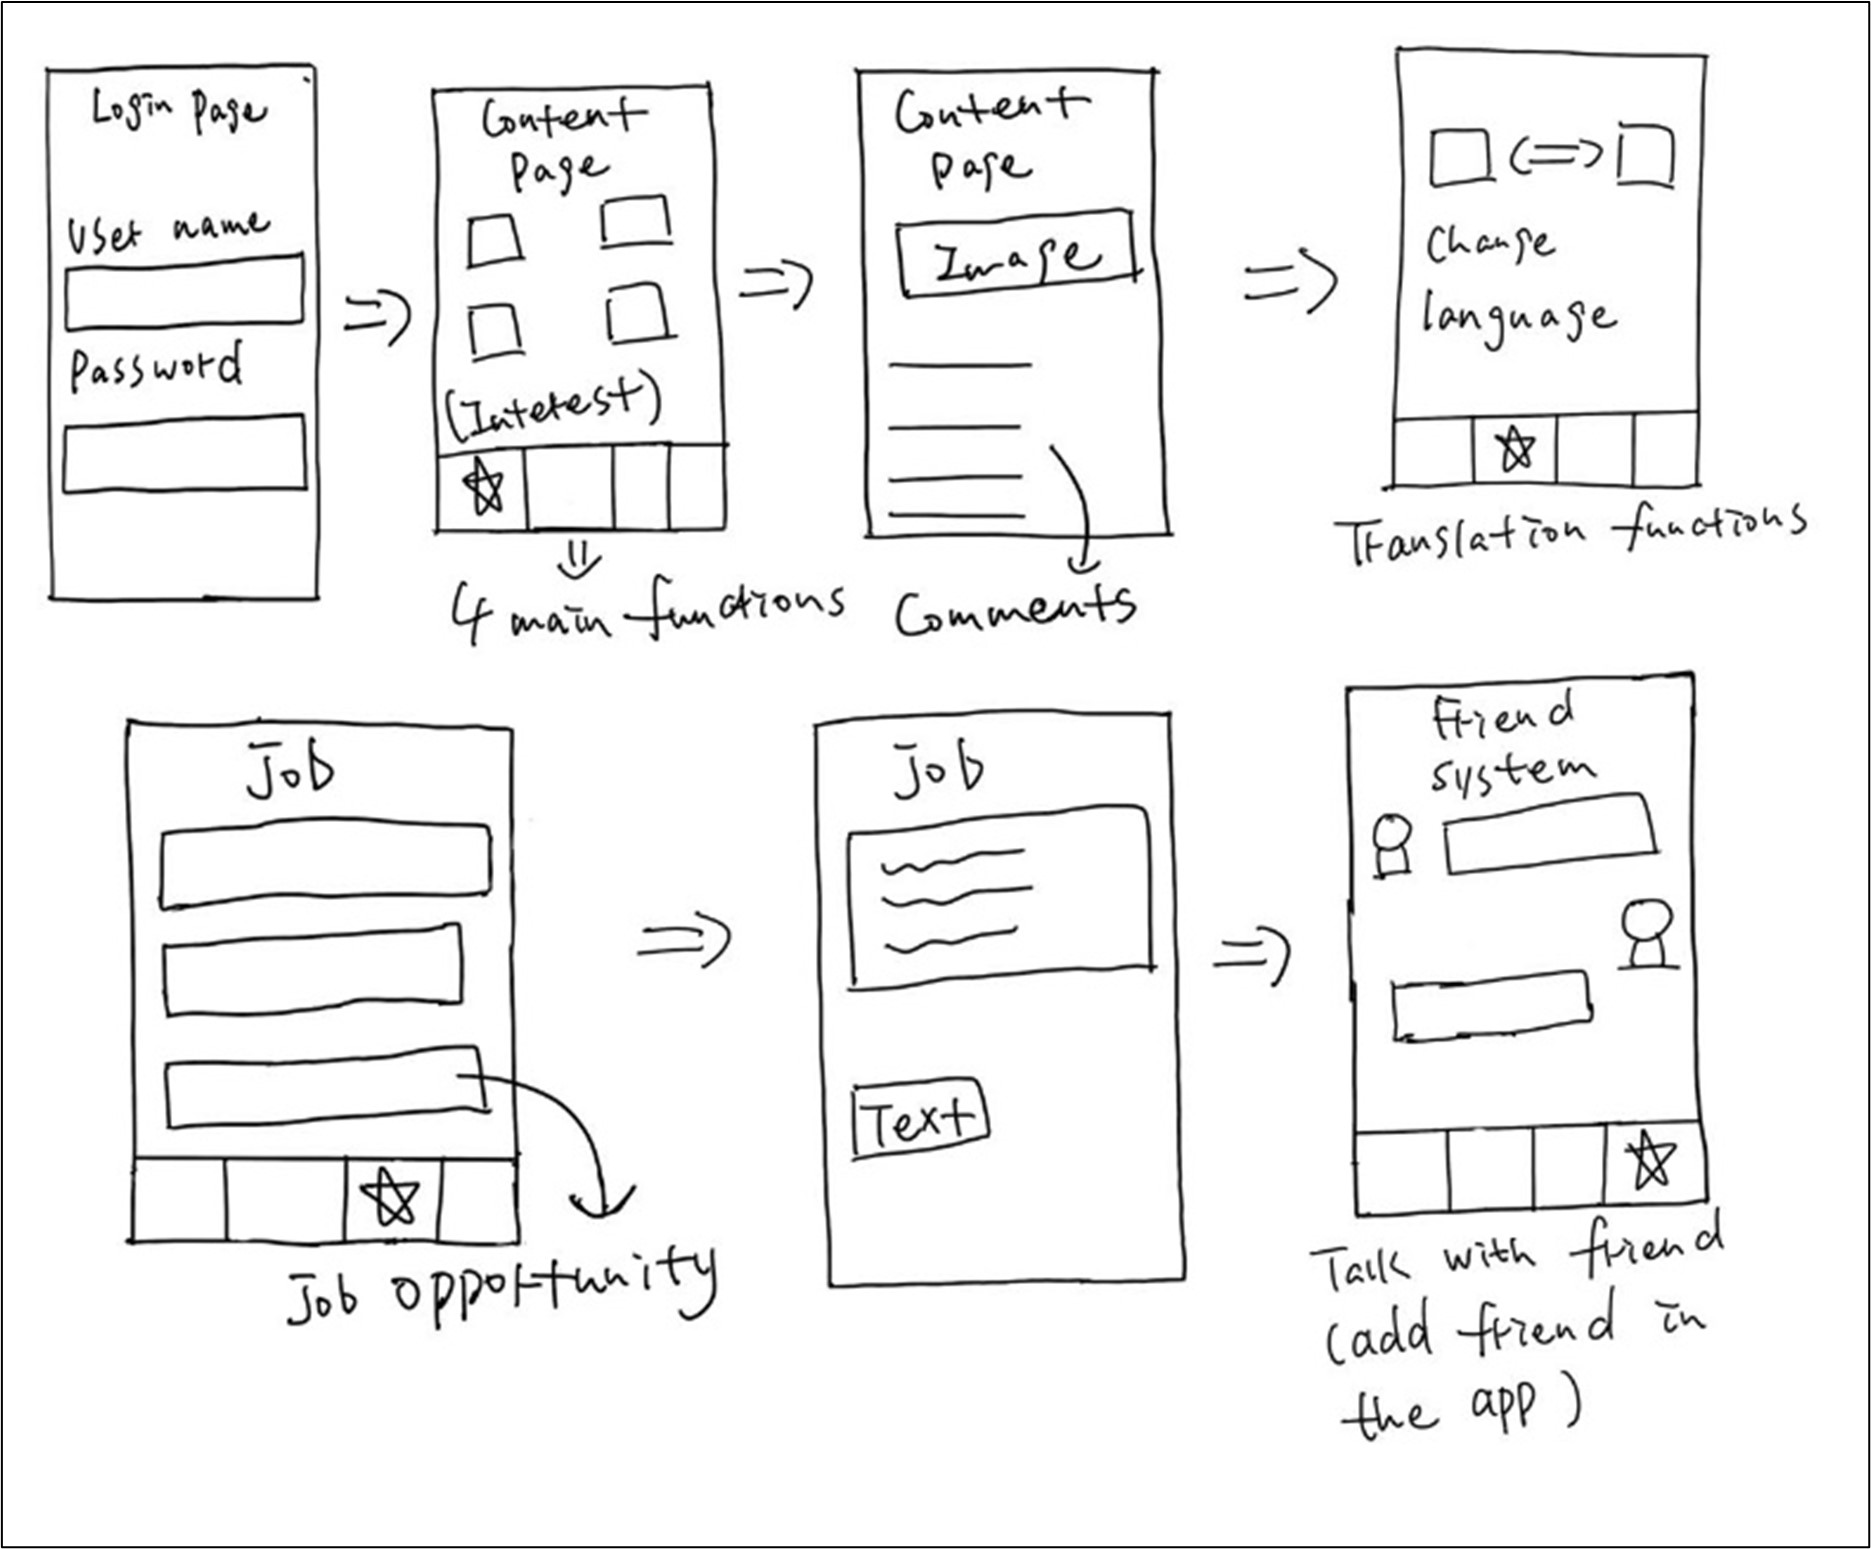 Login Page
User name
Password
Content
Page
(Interest)
4 main functions
Content
Page
Image
Comments
Change
language
Translation functions
Job
Job opportunity
Job
Text
Friend
system
Talk with friend
(add friend in
the app)